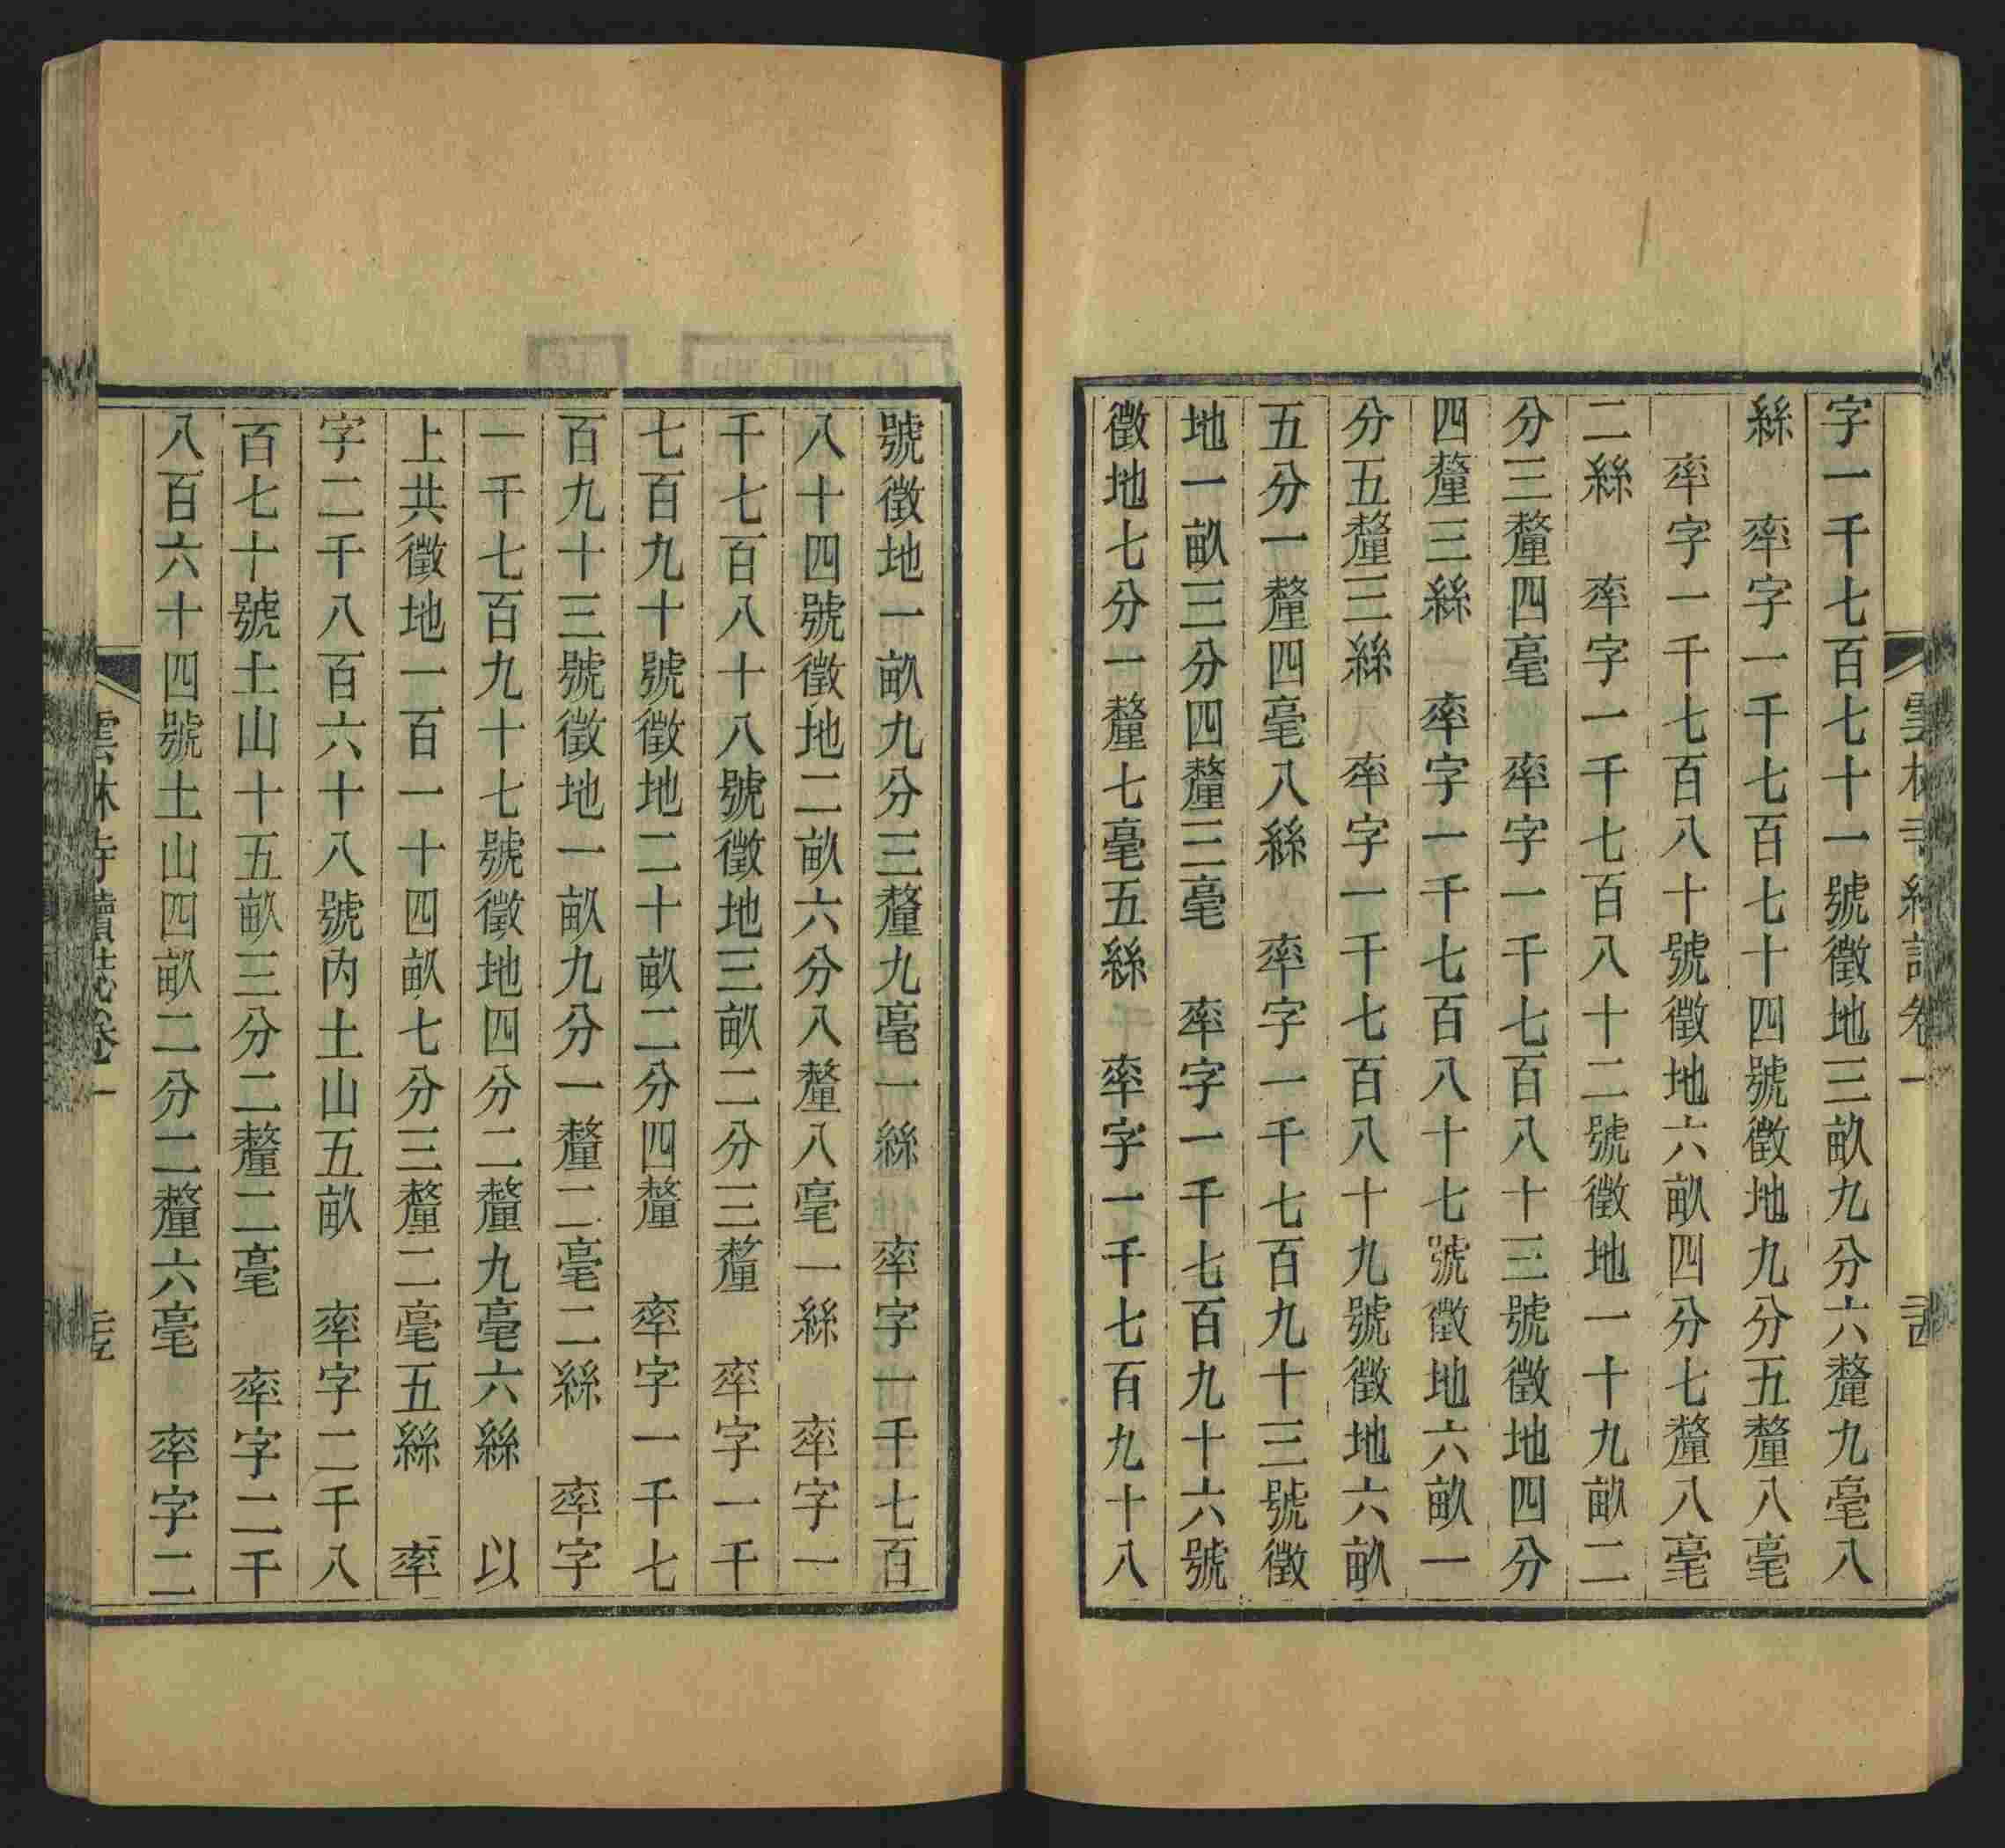 字一千七百七十一號徵地三畝九分六釐九毫八
絲　率字一千七百七十四號徵地九分五釐八毫
　率字一千七百八十號徵地六畝四分七釐八毫
二絲　率字一千七百八十二號徵地一十九畝二
分三釐四毫　率字一千七百八十三號徵地四分
四釐三絲　率字一千七百八十七號徵地六畝一
分五釐三絲　率字一千七百八十九號徵地六畝
五分一釐四毫八絲　率字一千七百九十三號徵
地一畝三分四釐三毫　率字一千七百九十六號
徵地七分一釐七毫五絲　率字一千七百九十八
號徵地一畝九分三釐九毫一絲　率字一千七百
八十四號徵地二畝六分八釐八毫一絲　率字一
千七百八十八號徵地三畝二分三釐　率字一千
七百九十號徵地二十畝二分四釐　率字一千七
百九十三號徵地一畝九分一釐二毫二絲　率字
一千七百九十七號徵地四分二釐九毫六絲　以
上共徵地一百一十四畝七分三釐二毫五絲　率
字二千八百六十八號內土山五畝　率字二千八
百七十號土山十五畝三分二釐二毫　率字二千
八百六十四號土山四畝二分二釐六毫　率字二
雲林寺續誌卷一